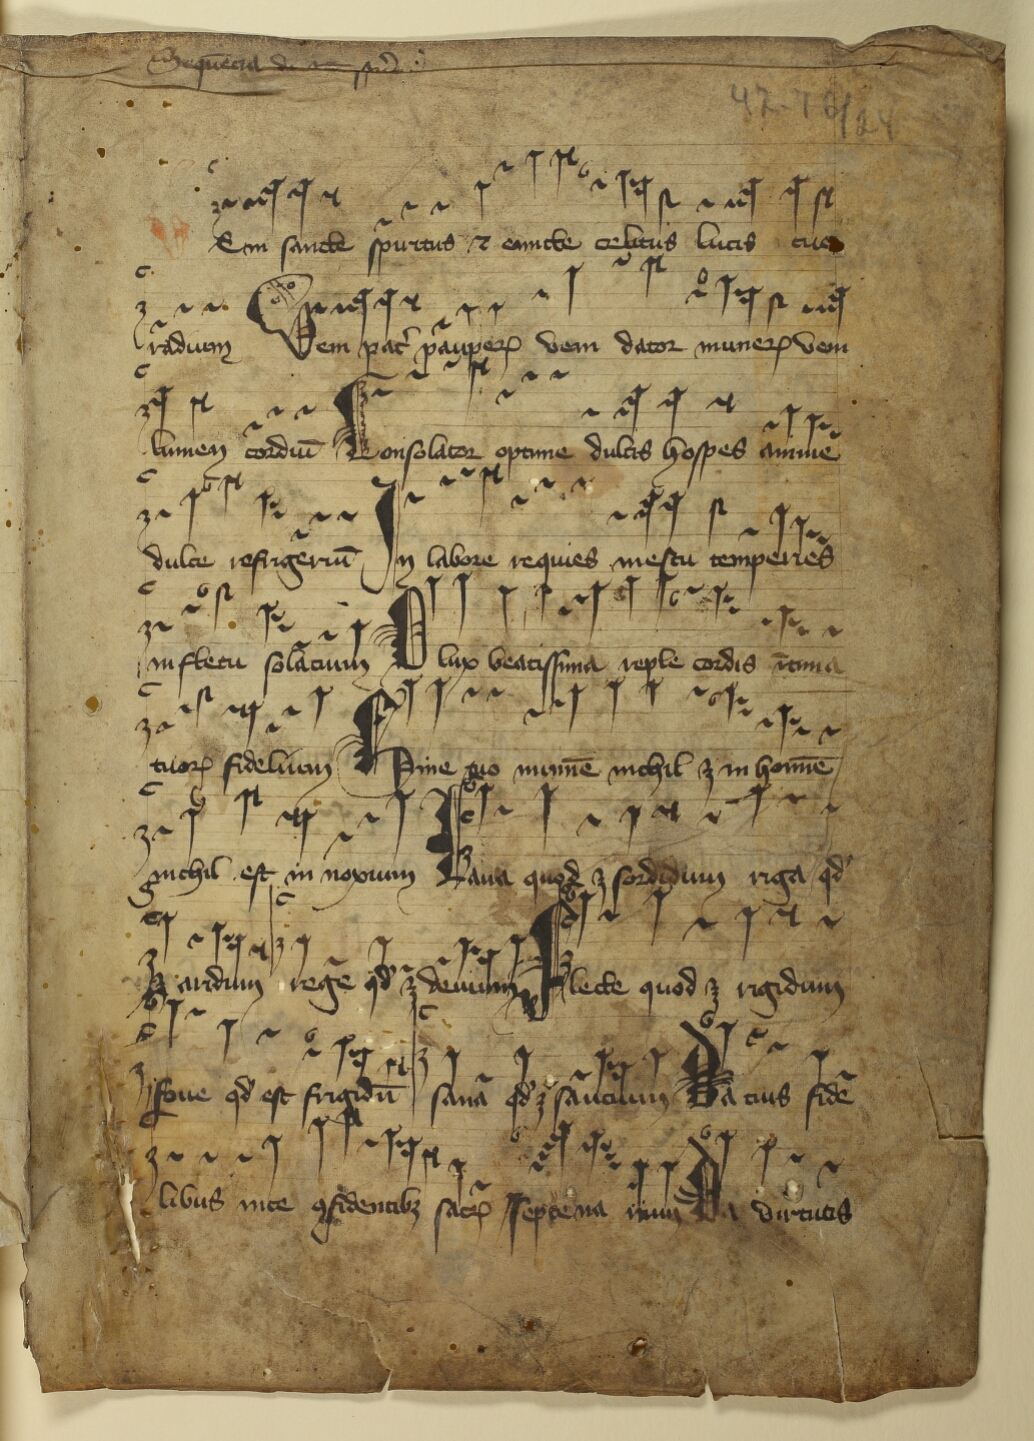 Sequencia de
47-76/24
Em sancte spiritus ⁊ emicte celitus lucis tue
radium Veni pat̄ pauper̄ veni dator muner̄ veni
lumen cordiū Consolator optime dulcis hospes anime
dulce refrigeriū In labore requies mestu temperies
in fletu solacium O lux beatissima reple cordis ītima
tuor̄ fidelium Sine tuo numīe nichil ʒ in homīe
nichil est in noxium Lava quod ʒ sordidum riga qd̄
ʒ aridum rege qd̄ ʒ devium flecte quod ʒ rigidum
fove qd̄ est frigidū sana qd̄ ʒ saucium Da tuis fide
libus in te ꝯfidentibꝫ sacr̄ septena rium Da virtutis